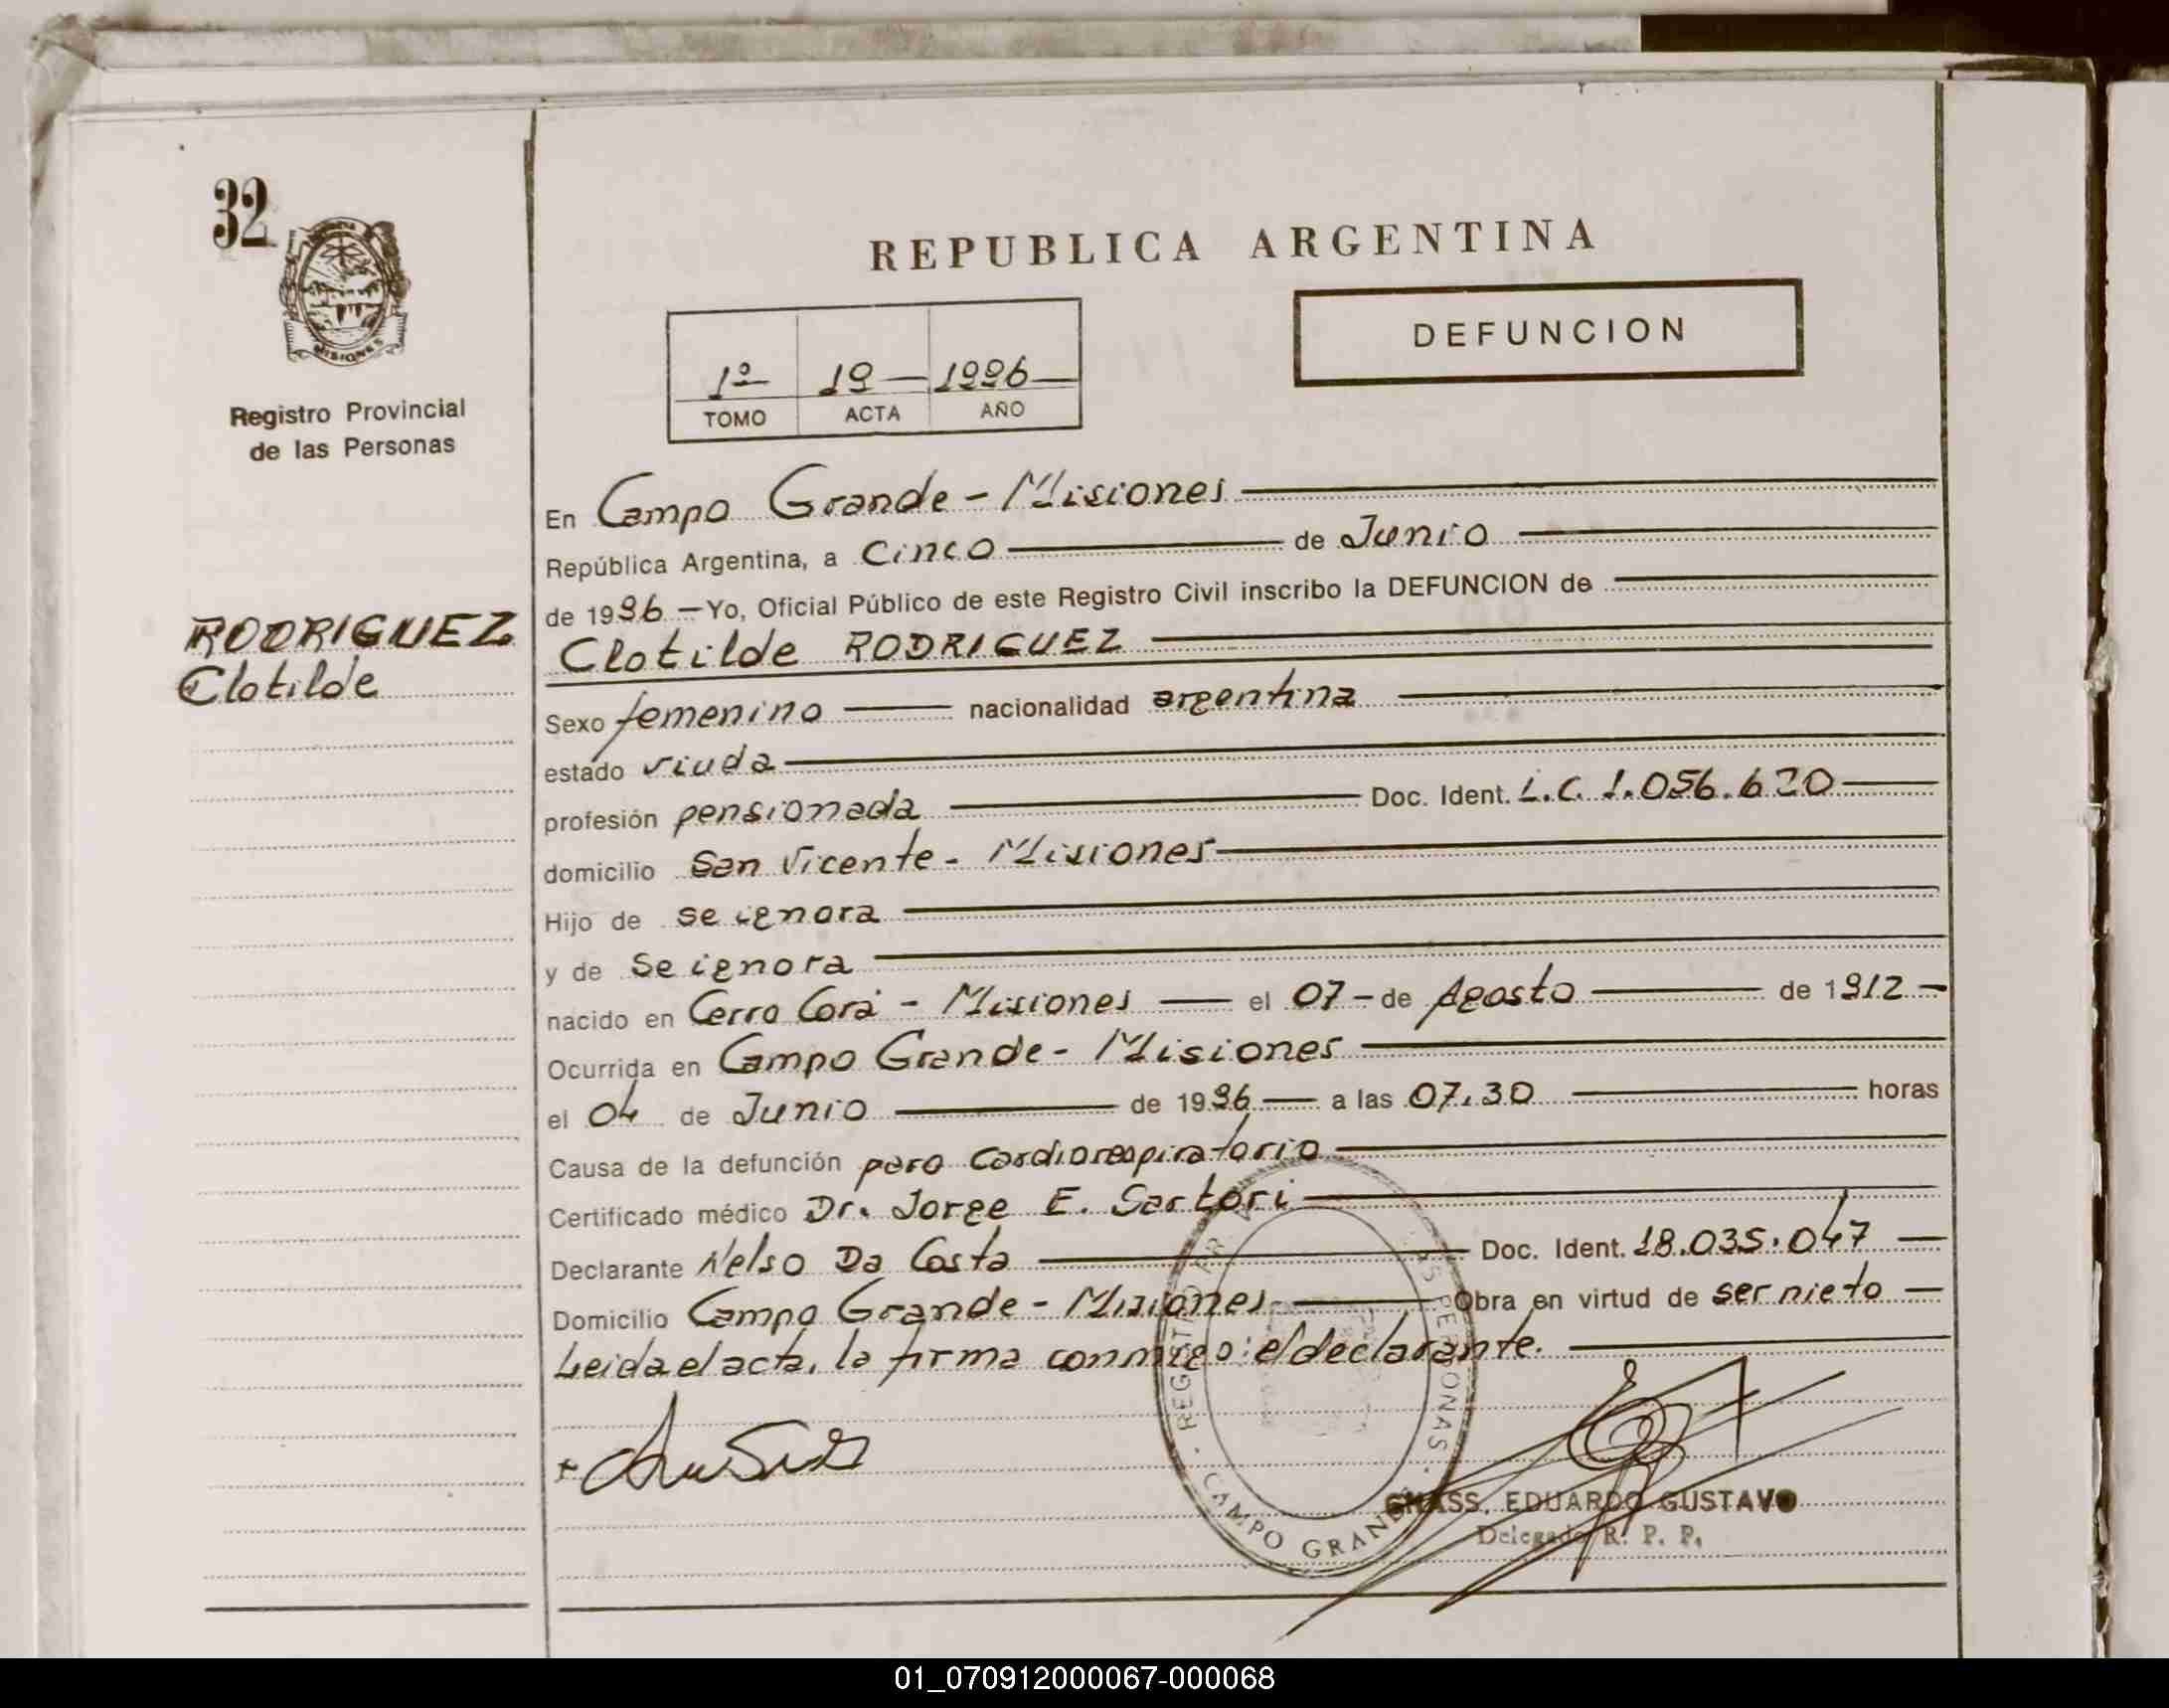 32
MISIONES
Registro Provincial
de las Personas
RODRIGUEZ
Clotilde
REPUBLICA ARGENTINA
1º 19 1996
TOMO ACTA AÑO
DEFUNCION
En Campo Grande - Misiones
República Argentina, a Cinco de Junio
de 1996 - Yo, Oficial Público de este Registro Civil inscribo la DEFUNCION de
Clotilde RODRIGUEZ
Sexo femenino nacionalidad argentina
estado viuda
profesión pensionada Doc. Ident. L.C. 1.056.620
domicilio San Vicente - Misiones
Hijo de se ignora
y de Se ignora
nacido en Cerro Corá - Misiones el 07 - de Agosto de 1912 -
Ocurrida en Campo Grande - Misiones
el 04 de Junio de 1996 a las 07.30 horas
Causa de la defunción paro cardiorespiratorio
Certificado médico Dr. Jorge E. Sartori
Declarante Nelso Da Costa Doc. Ident. 18.035.047
Domicilio Campo Grande - Misiones Obra en virtud de ser nieto
Leida el acta, la firma conmigo: el declarante.
REGISTRO PERSONAS
CAMPO GRANDE
GNASS, EDUARDO GUSTAVO
Delegado R. P. P.
01_070912000067-000068